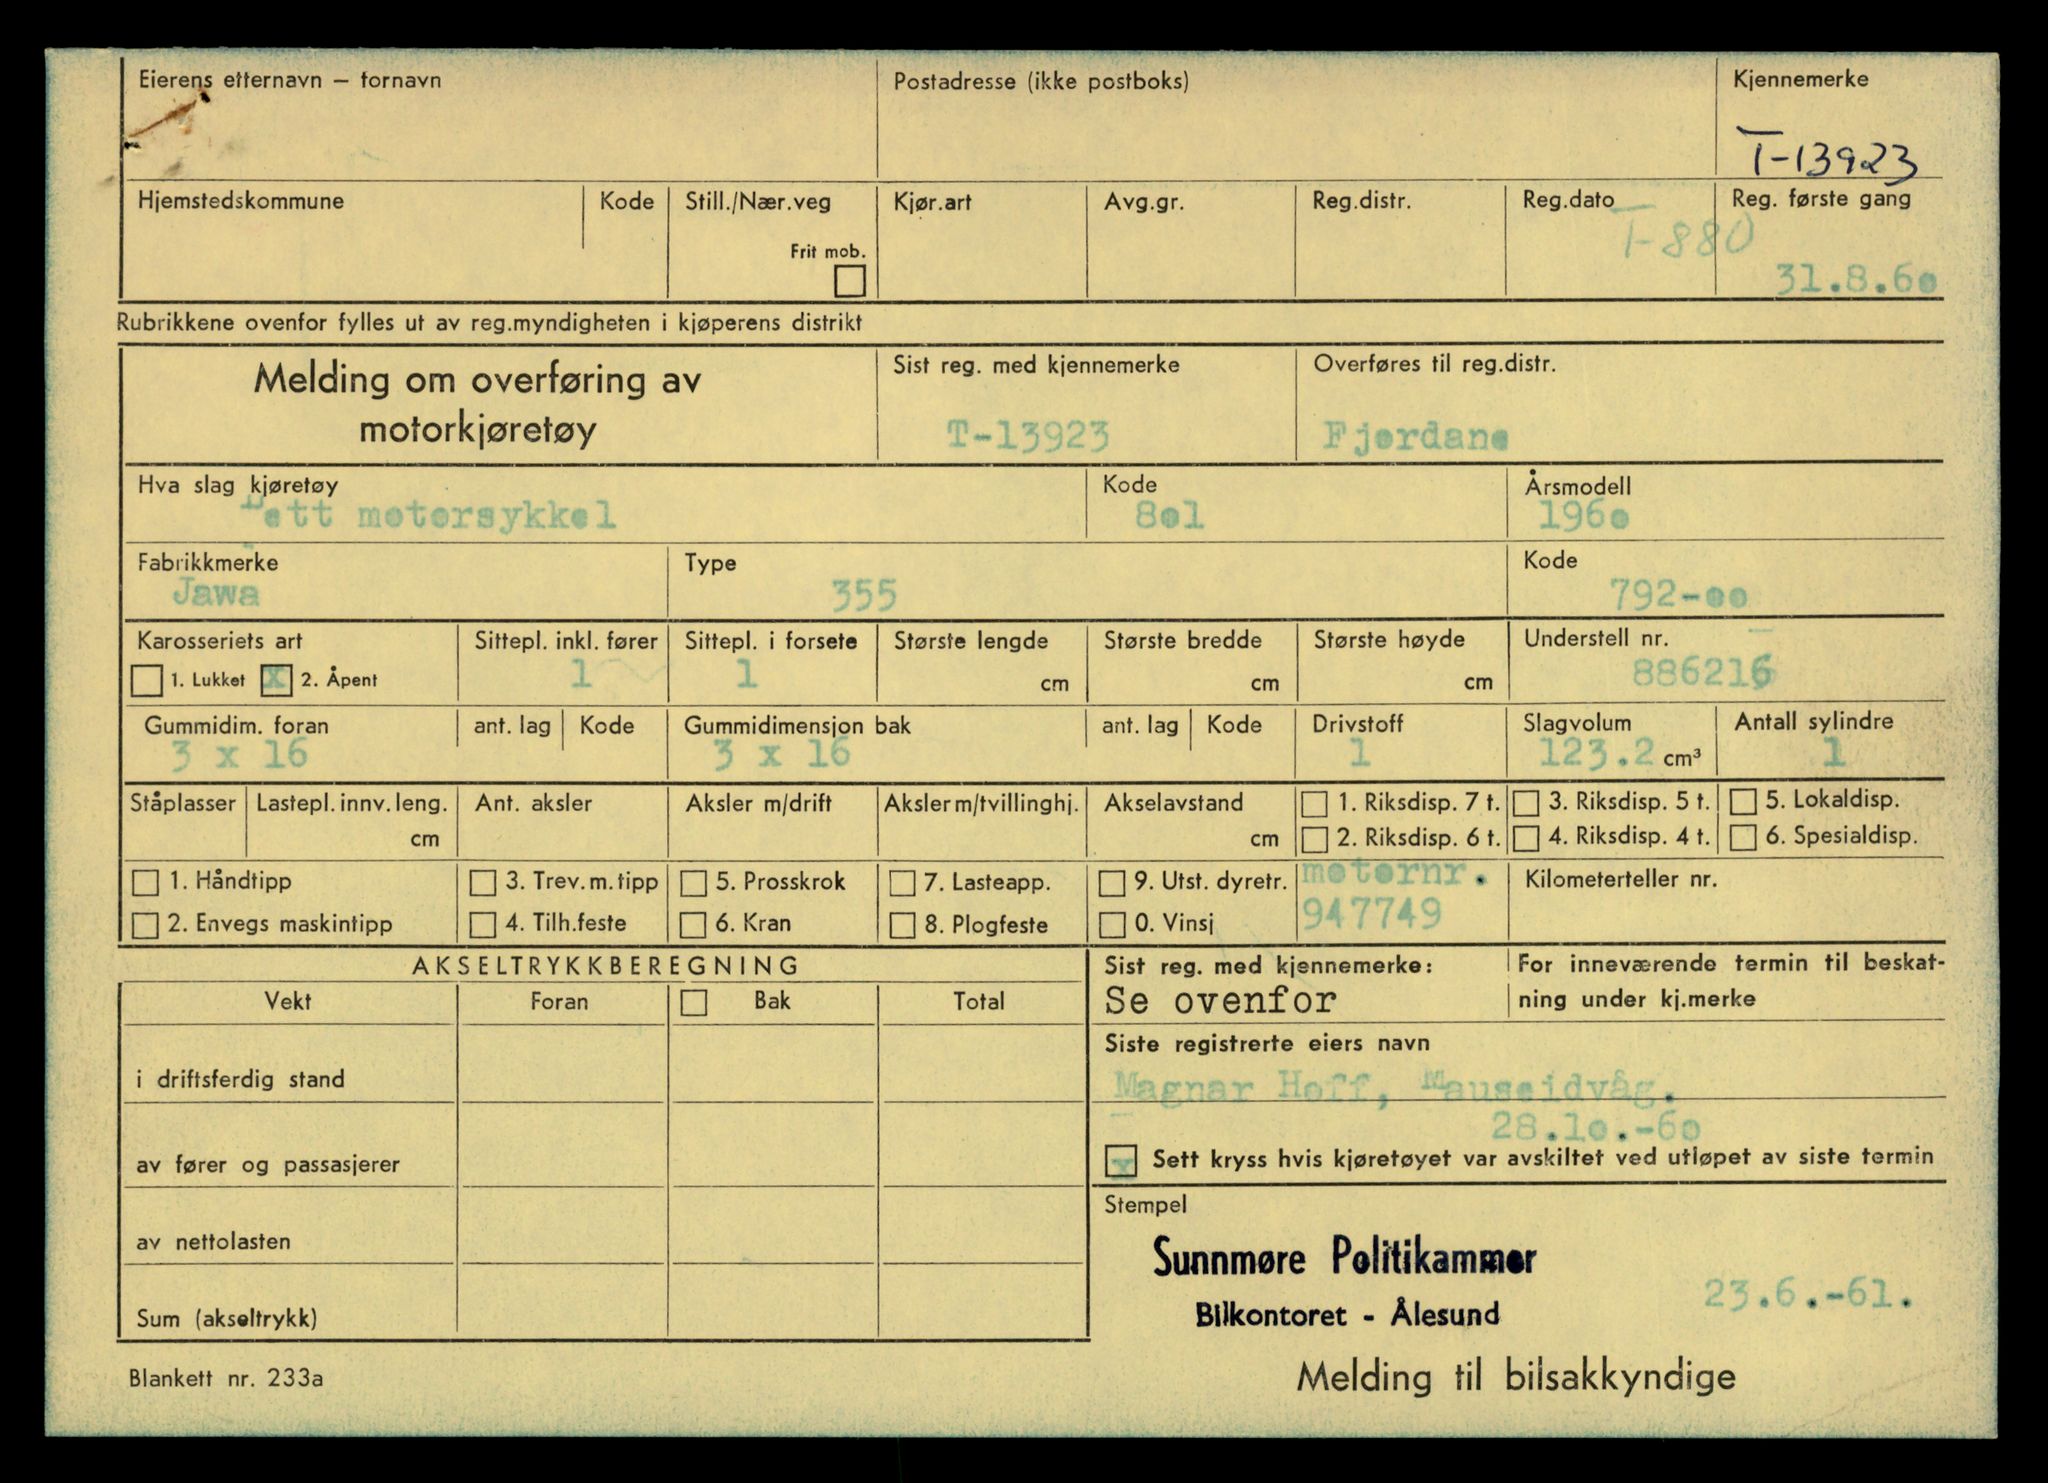 Eierens etternavn — fornavn
Postadresse (ikke postboks)
Kjennemerke
T-13923
Hjemstedskommune
Kode
Still./Nær.veg
Frit mob.
Kjør.art
Avg.gr.
Reg.distr.
Reg.dato
T-880
Reg. første gang
31.8.60
Rubrikkene ovenfor fylles ut av reg.myndigheten i kjøperens distrikt
Melding om overføring av
motorkjøretøy
Sist reg. med kjennemerke
T-13923
Overføres til reg.distr.
Fjordane
Hva slag kjøretøy
Lett motorsykkel
Kode
801
Årsmodell
1960
Fabrikkmerke
Jawa
Type
355
Kode
792-00
Karosseriets art
1. Lukket X 2. Åpent
Sittepl. inkl. fører
1
Sittepl. i forsete
1
Største lengde
cm
Største bredde
cm
Største høyde
cm
Understell nr.
886216
Gummidim. foran
3 x 16
ant. lag
Kode
Gummidimensjon bak
3 x 16
ant. lag
Kode
Drivstoff
1
Slagvolum
123.2 cm³
Antall sylindre
1
Ståplasser
Lastepl. innv. leng.
cm
Ant. aksler
Aksler m/drift
Aksler m/tvillinghj.
Akselavstand
cm
1. Riksdisp. 7 t.
2. Riksdisp. 6 t.
3. Riksdisp. 5 t.
4. Riksdisp. 4 t.
5. Lokaldisp.
6. Spesialdisp.
1. Håndtipp
2. Envegs maskintipp
3. Trev. m. tipp
4. Tilh.feste
5. Prosskrok
6. Kran
7. Lasteapp.
8. Plogfeste
9. Utst. dyretr.
0. Vinsj
motornr.
947749
Kilometerteller nr.
AKSELTRYKKBEREGNING
Vekt
Foran
Bak
Total
i driftsferdig stand
av fører og passasjerer
av nettolasten
Sum (akseltrykk)
Sist reg. med kjennemerke:
Se ovenfor
For inneværende termin til beskat-
ning under kj.merke
Siste registrerte eiers navn
Magnar Hoff, Mauseidvåg.
28.10.-60
x Sett kryss hvis kjøretøyet var avskiltet ved utløpet av siste termin
Stempel
Sunnmøre Politikammer
Bilkontoret - Ålesund
23.6.-61.
Blankett nr. 233a
Melding til bilsakkyndige